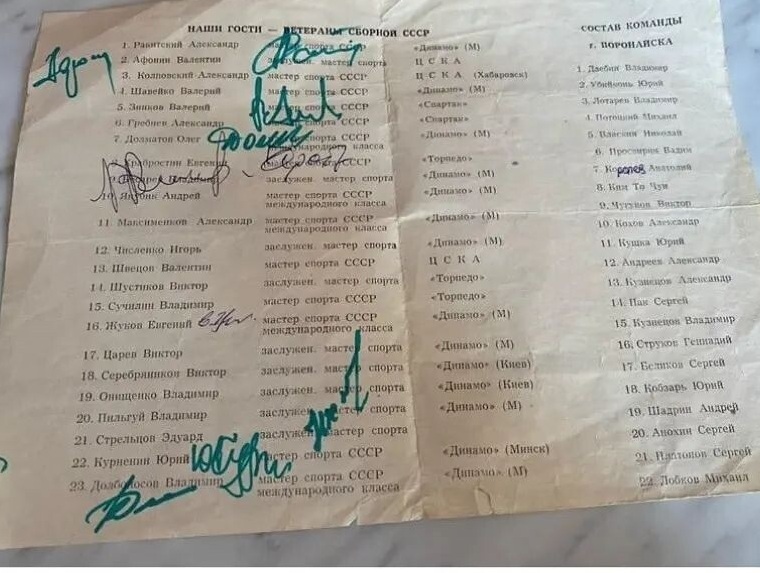 НАШИ ГОСТИ — ВЕТЕРАНЫ СБОРНОЙ СССР
1. Ракитский Александр мастер спорта СССР «Динамо» (М)
2. Афонин Валентин заслужен. мастер спорта ЦСКА
3. Колповский Александр мастер спорта СССР ЦСКА (Хабаровск)
4. Шавейко Валерий мастер спорта СССР «Динамо» (М)
5. Зинков Валерий мастер спорта СССР «Спартак»
6. Гребнев Александр мастер спорта СССР «Спартак»
7. Долматов Олег мастер спорта СССР «Динамо» (М)
международного класса
Храбростин Евгений мастер спорта СССР «Торпедо»
9. заслужен. мастер спорта «Динамо» (М)
10. Якубик Андрей мастер спорта СССР «Динамо» (М)
международного класса
11. Максименков Александр мастер спорта СССР «Динамо» (М)
международного класса
12. Численко Игорь заслужен. мастер спорта «Динамо» (М)
13. Швецов Валентин мастер спорта СССР ЦСКА
14. Шустиков Виктор мастер спорта СССР «Торпедо»
15. Сучилин Владимир мастер спорта СССР «Торпедо»
16. Жуков Евгений мастер спорта СССР «Динамо» (М)
международного класса
17. Царев Виктор заслужен. мастер спорта «Динамо» (М)
18. Серебрянников Виктор заслужен. мастер спорта «Динамо» (Киев)
19. Онищенко Владимир заслужен. мастер спорта «Динамо» (Киев)
20. Пильгуй Владимир заслужен. мастер спорта «Динамо» (М)
21. Стрельцов Эдуард заслужен. мастер спорта
22. Курненин Юрий мастер спорта СССР «Динамо» (Минск)
23. Долбоносов Владимир мастер спорта СССР «Динамо» (М)
международного класса
СОСТАВ КОМАНДЫ
г. ПОРОНАЙСКА
1. Дзебин Владимир
2. Убийконь Юрий
3. Лотарев Владимир
4. Потоцкий Михаил
5. Власкин Николай
6. Просвирев Вадим
7. Королев Анатолий
8. Ким То Чун
9. Чугунов Виктор
10. Кохов Александр
11. Кушка Юрий
12. Андреев Александр
13. Кузнецов Александр
14. Пак Сергей
15. Кузнецов Владимир
16. Струков Геннадий
17. Беликов Сергей
18. Кобзарь Юрий
19. Шадрин Андрей
20. Анохин Сергей
21. Платонов Сергей
22. Лобков Михаил